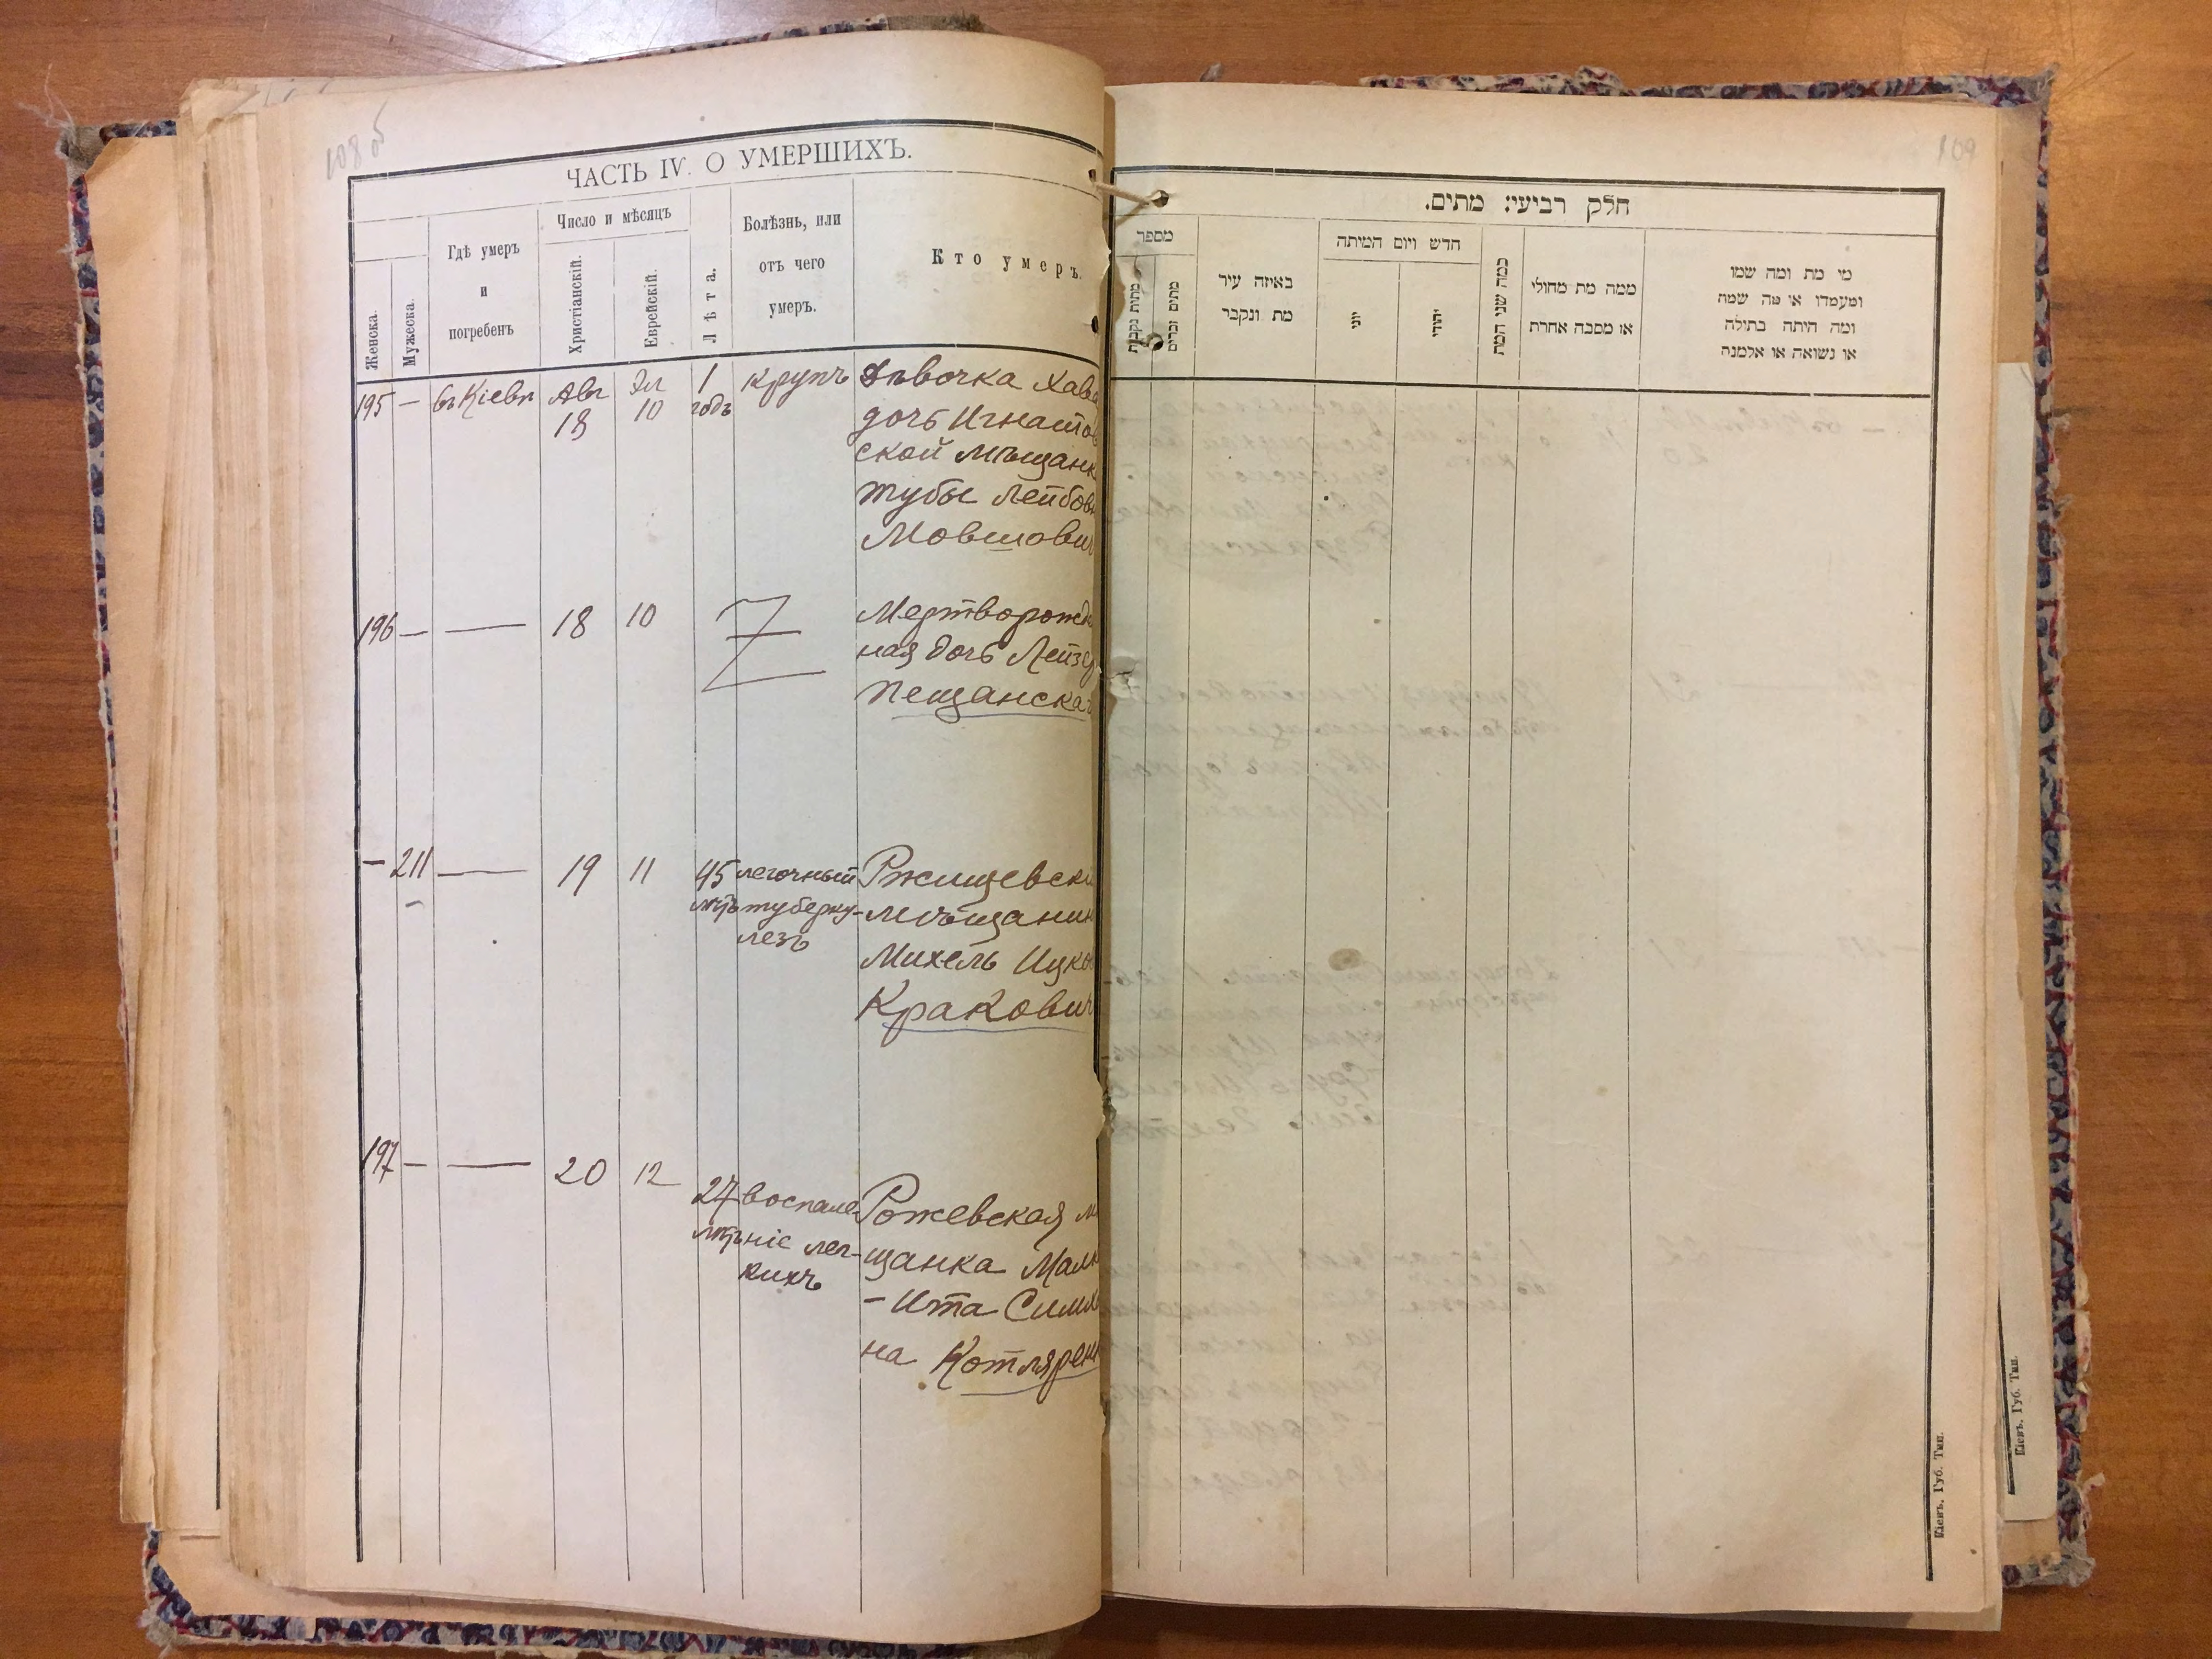 108 об
ЧАСТЬ IV. О УМЕРШИХЪ.
Женска.
Мужеска.
Гдѣ умеръ
и
погребенъ
Число и мѣсяцъ
Христіанскій.
Еврейскій.
Лѣта.
Болѣзнь, или
отъ чего
умеръ.
Кто умеръ.
195 — въ Кіевѣ Авг 18 Эл 10 1 годъ крупъ
Дѣвочка Хава
дочь Игнатов
ской мѣщанк
Тубы Лейбовн
Мовшович
196 — — 18 10
Мертворожд
ная дочь Лейзер
Пещанская
— 211 — 19 11 45 лѣтъ
легочный
туберку-
лезъ
Ржищевск
мѣщанин
Михель Ицков
Кракович
197 — — 20 12 27 лѣтъ
воспале-
ніе лег-
кихъ
Рожевская м
щанка Малк
- Ита Симх
на Котляренк
109
חלק רביעי: מתים.
מספר
מתות נקבות
מתים זכרים
באיזה עיר
מת ונקבר
חדש ויום המיתה
יוני
יהודי
כמה שני המת
ממה מת מחולי
או מסבה אחרת
מי מת ומה שמו
ומעמדו או מה שמה
ומה היתה בתולה
או נשואה או אלמנה
Кіевъ, Губ. Тип.
Кіевъ, Губ. Тип.